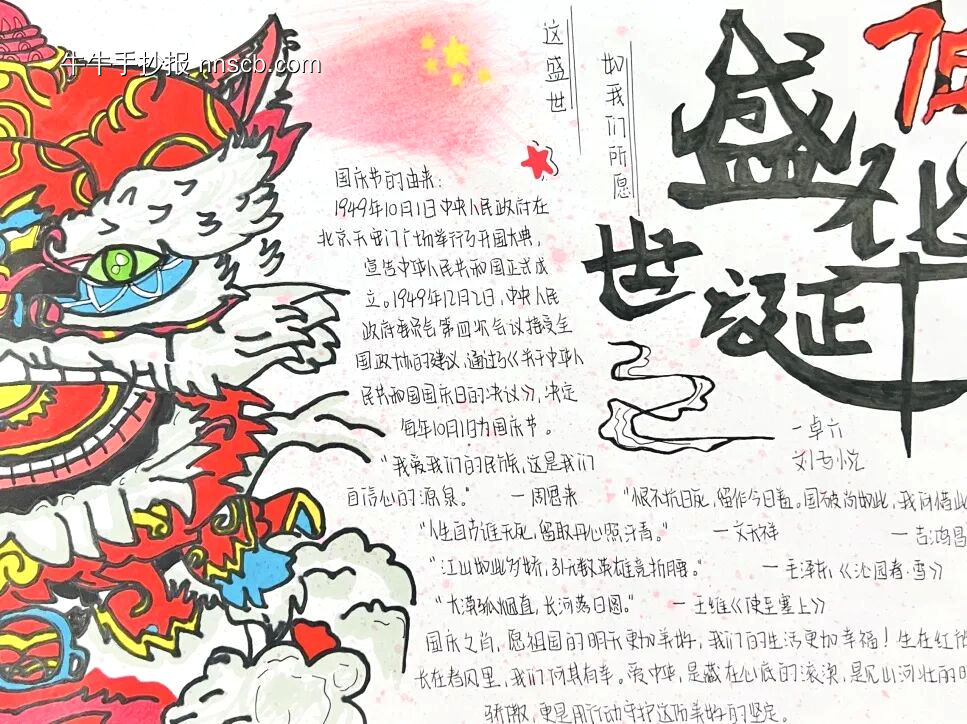 牛牛手抄报 nnscb.com
这盛世
如我们所愿
盛世华诞
国庆节的由来:
1949年10月1日中央人民政府在
北京天安门广场举行了开国大典,
宣告中华人民共和国正式成
立。1949年12月2日,中央人民
政府委员会第四次会议接受全
国政协的建议,通过了《关于中华人
民共和国国庆日的决议》,决定
每年10月1日为国庆节。
一卓六
“我爱我们的民族,这是我们
自信心的源泉。” 一周恩来
“恨不抗日死,留作今日羞。国破尚如此,我何惜此
一吉鸿昌
“人生自古谁无死,留取丹心照汗青。” 一文天祥
“江山如此多娇,引无数英雄竞折腰。” 一毛泽东《沁园春·雪》
“大漠孤烟直,长河落日圆。” 一王维《使至塞上》
国庆之肖,愿祖国的明天更加美好,我们的生活更加幸福!生在红旗
长在春风里,我们何其有幸。爱中华,是藏在心底的滚烫,是见山河壮的
骄傲,更是用行动守护这份美好的坚定。